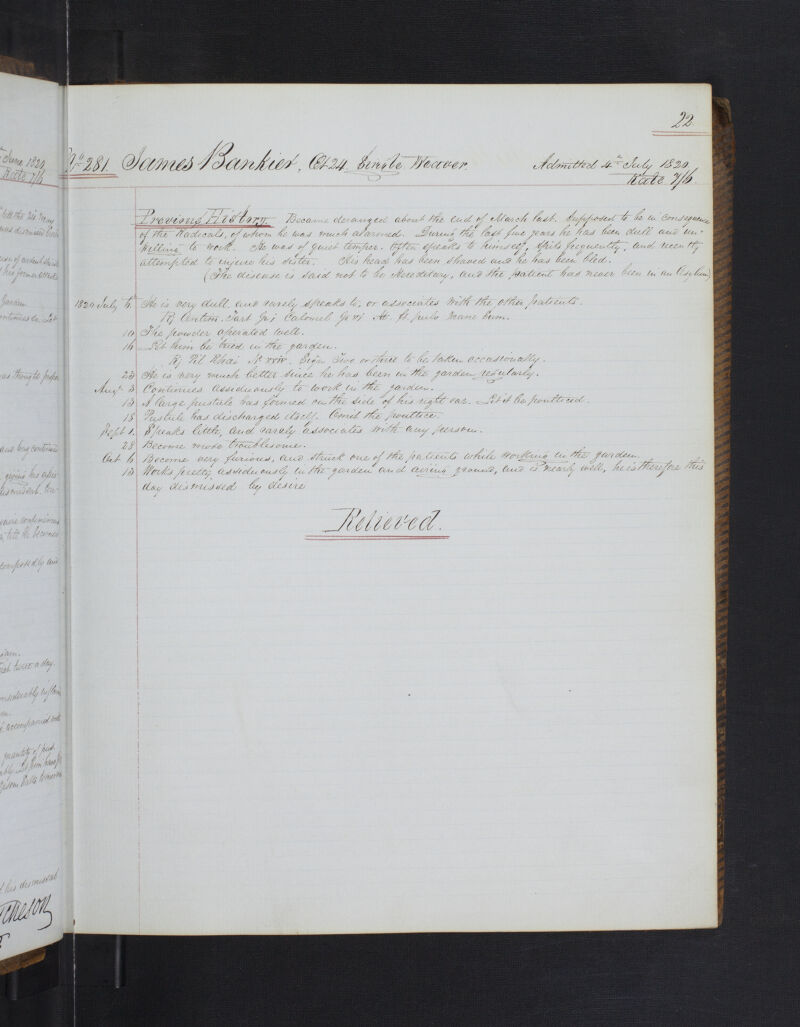 22
No 281. James Bankier, Æt 24. Single Weaver. Admitted 4th July 1820.
Rate 7/6.
Previous History. Became deranged about the end of March last. Supposed to be in consequence
of the Radicals, of whom he was much alarmed. During the last five years he has been dull and un-
willing to work. He was of quiet temper. Often speaks to himself, spits frequently, and recently
attempted to injure his sister. His head has been shaved and he has been bled.
(The disease is said not to be Hereditary, and the patient has never been in an Asylum)
1820 July 6. He is very dull, and rarely speaks to, or associates with the other patients.
Rx Antim. Tart. gr j Calomel gr vi M. ft pulv mane sum.
10 The powder operated well.
16 Let him be tried in the garden.
Rx Pil Rhæi No xxiv. Sign Two or three to be taken occasionally.
23 He is very much better since he has been in the garden regularly.
Augt 3 Continues assiduously to work in the garden.
10 A large pustule has formed on the side of his right ear. Let it be poulticed.
18 Pustule has discharged itself. Omit the poultice.
Sept 1. Speaks little, and rarely associates with any person.
28 Become more troublesome.
Oct 6. Become very furious, and struck one of the patients while working in the garden.
10 Works pretty assiduously in the garden and airing ground, and is nearly well, he is therefore this
day dismissed by desire
Relieved.
June 1820
Rate 7/6